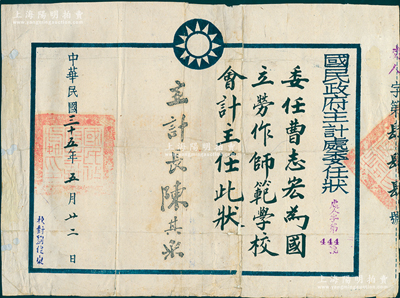 字第肆肆肆號
國民政府主計處委任狀
處人字第
444
號
委任曹志宏為國
立勞作師範學校
會計主任此狀
主計長陳其采
中華民國三十五年五月廿二日